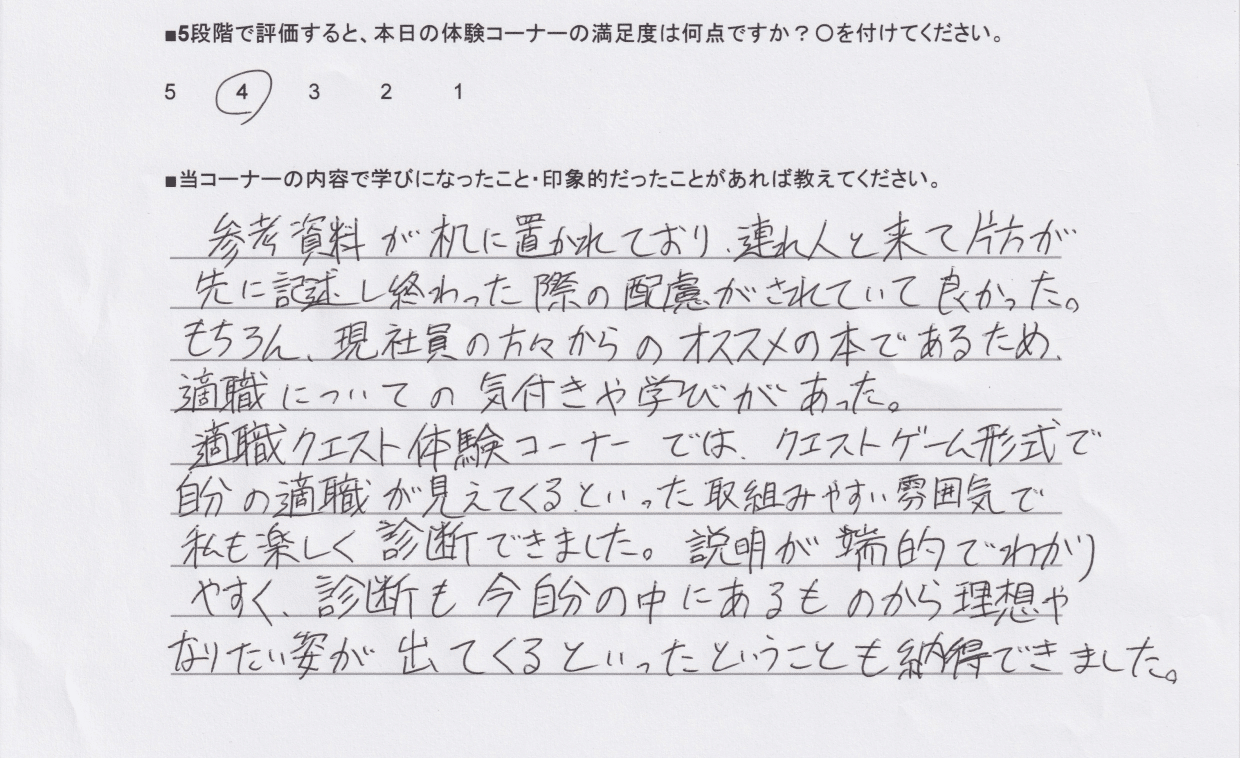 ■5段階で評価すると、本日の体験コーナーの満足度は何点ですか？〇を付けてください。
5 4 3 2 1
■当コーナーの内容で学びになったこと・印象的だったことがあれば教えてください。
参考資料が机に置かれており、連れ人と来て片方が
先に記述し終わった際の配慮がされていて良かった。
もちろん、現社員の方々からのオススメの本であるため、
適職についての気付きや学びがあった。
適職クエスト体験コーナーでは、クエストゲーム形式で
自分の適職が見えてくるといった取組みやすい雰囲気で
私も楽しく診断できました。説明が端的でわかり
やすく、診断も今自分の中にあるものから理想や
なりたい姿が出てくるといったということも納得できました。